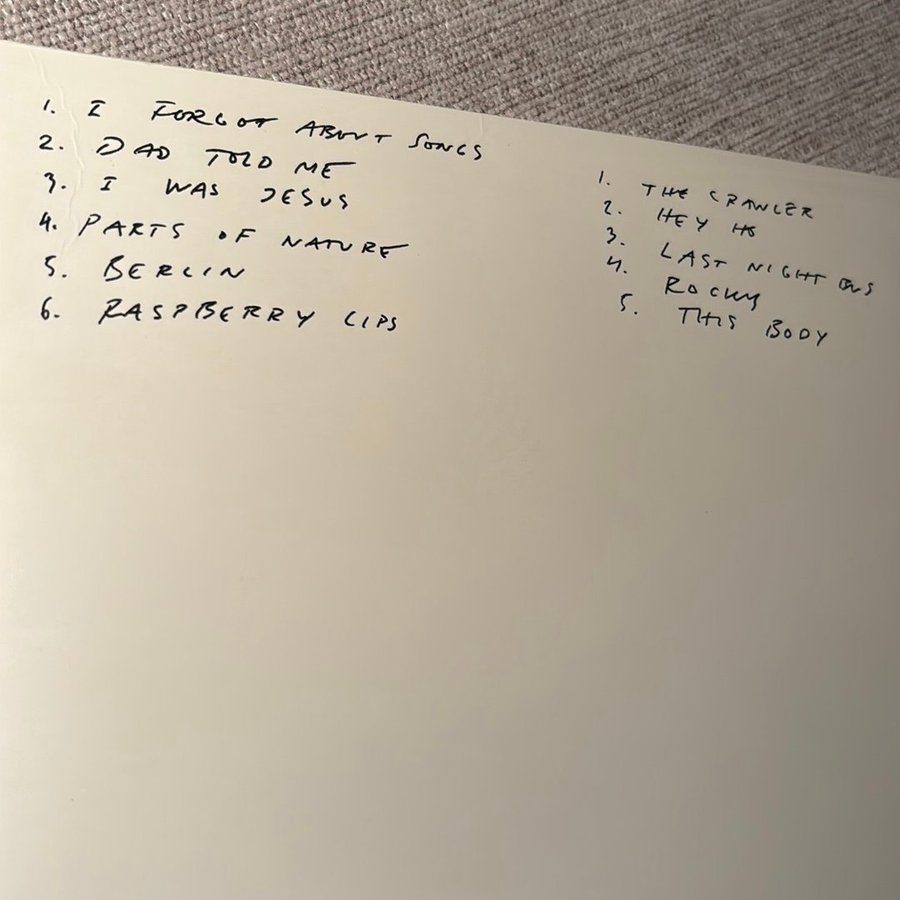 1. I FORGOT ABOUT SONGS
2. DAD TOLD ME
3. I WAS JESUS
4. PARTS OF NATURE
5. BERLIN
6. RASPBERRY LIPS
1. THE CRAWLER
2. HEY HO
3. LAST NIGHT BUS
4. ROCKY
5. THIS BODY